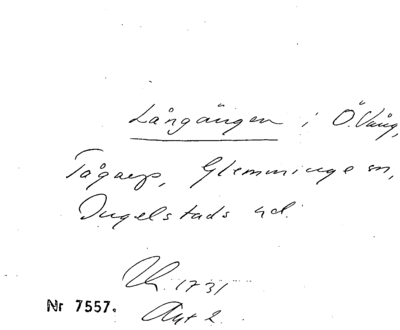 Långängen i Ö. Vång,
Tågarp, Glemminge sn,
Ingelstads hd.
Lh. 1731
Akt 2.
Nr 7557.